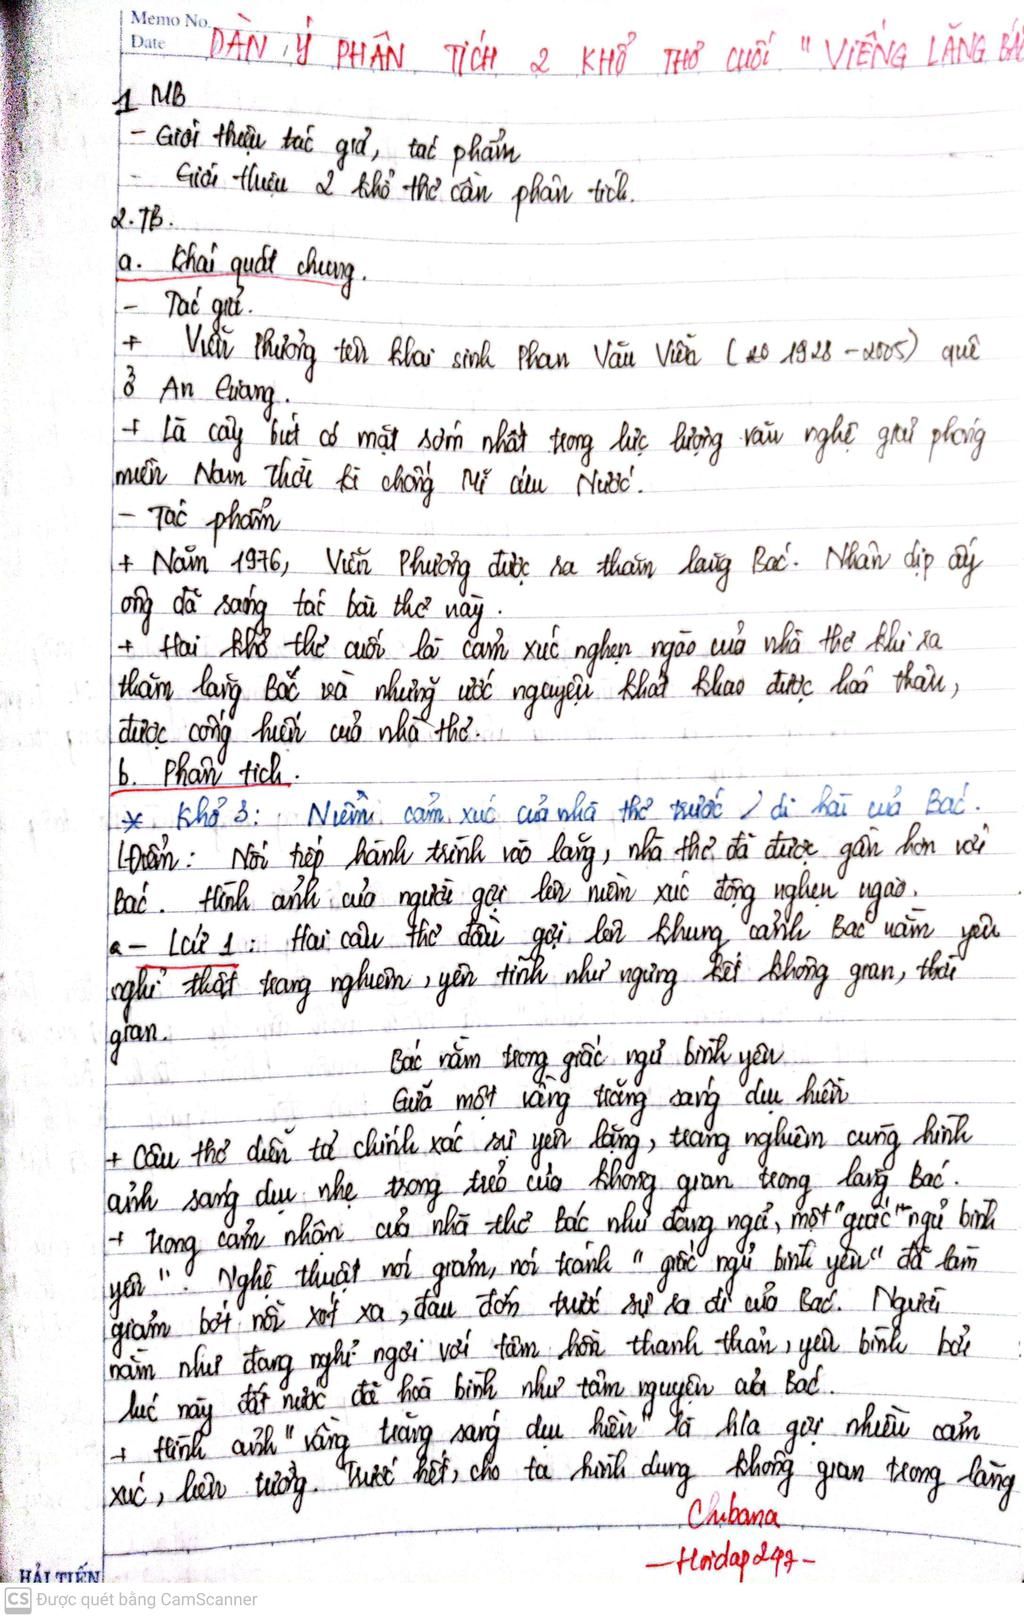 Memo No.
Date
DÀN Ý PHÂN TÍCH 2 KHỔ THƠ CUỐI "VIẾNG LĂNG BÁC
1 MB
- Giới thiệu tác giả, tác phẩm
- Giới thiệu 2 khổ thơ cần phân tích.
2. TB.
a. Khái quát chung.
- Tác giả.
+ Viễn Phương tên khai sinh Phan Văn Viễn ( 1928 - 2005) quê
ở An Giang.
+ Là cây bút có mặt sớm nhất trong lực lượng văn nghệ giải phóng
miền Nam thời kì chống Mĩ cứu Nước.
- Tác phẩm
+ Năm 1976, Viễn Phương được ra thăm lăng Bác. Nhân dịp đấy
ông đã sáng tác bài thơ này.
+ Hai khổ thơ cuối là cảm xúc nghẹn ngào của nhà thơ khi ra
thăm lăng Bác và những ước nguyện khát khao được hoá thân,
được cống hiến của nhà thơ.
b. Phân tích.
* Khổ 3: Niềm cảm xúc của nhà thơ trước di hài của Bác.
LĐiểm: Nối tiếp hành trình vào lăng, nhà thơ đã được gần hơn với
Bác. Hình ảnh của người gợi lên niềm xúc động nghẹn ngào.
a - LCứ 1: Hai câu thơ đầu gợi lên khung cảnh Bác nằm yên
nghỉ thật trang nghiêm, yên tĩnh như ngưng kết không gian, thời
gian.
Bác nằm trong giấc ngủ bình yên
Giữa một vầng trăng sáng dịu hiền
+ Câu thơ diễn tả chính xác sự yên lặng, trang nghiêm cùng hình
ảnh sáng dịu nhẹ trong trẻo của không gian trong lăng Bác.
+ Trong cảm nhận của nhà thơ Bác như đang ngủ, một "giấc" ngủ bình
yên". Nghệ thuật nói giảm, nói tránh "giấc ngủ bình yên" đã làm
giảm bớt nỗi xót xa, đau đớn trước sự ra đi của Bác. Người
nằm như đang nghỉ ngơi với tâm hồn thanh thản, yên bình bởi
lúc này đất nước đã hoà bình như tâm nguyện của Bác.
+ Hình ảnh "vầng trăng sáng dịu hiền" là h/a gợi nhiều cảm
xúc, liên tưởng. Trước hết, cho ta hình dung không gian trong lăng
Chibana
- Hoidap247 -
HẢI TIẾN
CS Được quét bằng CamScanner